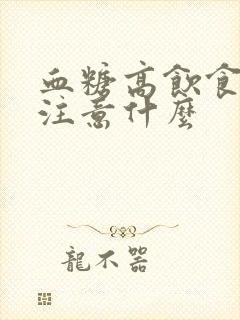 血糖高飲食
注意什麼
龍不器